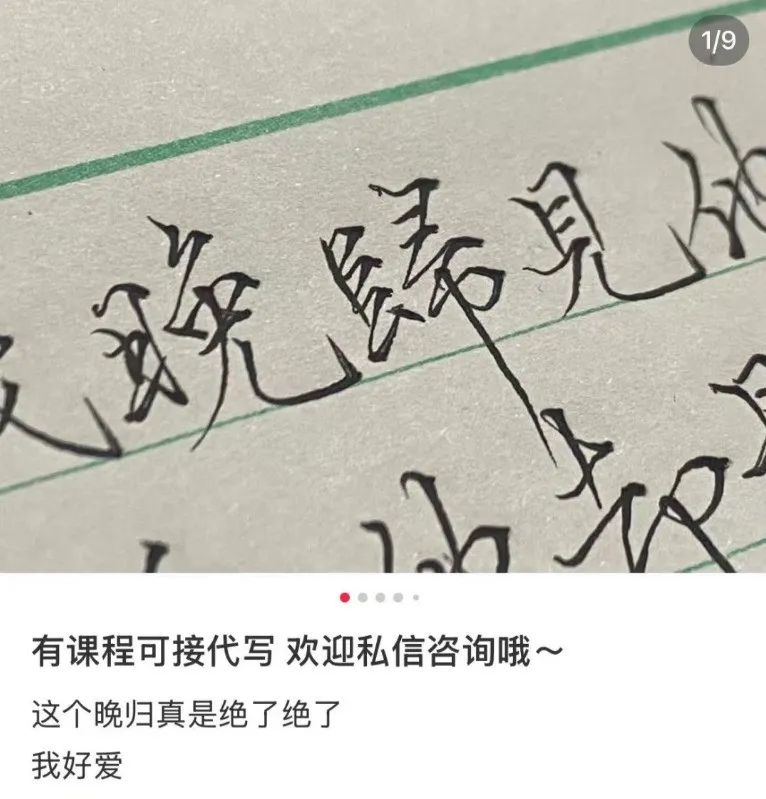 1/9
晚歸見他
有课程可接代写 欢迎私信咨询哦～
这个晚归真是绝了绝了
我好爱